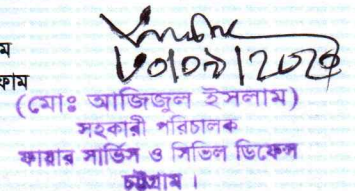 ম
কাম
৮০/০৯/2020
(মোঃ আজিজুল ইসলাম)
সহকারী পরিচালক
ফায়ার সার্ভিস ও সিভিল ডিফেন্স
চট্টগ্রাম।